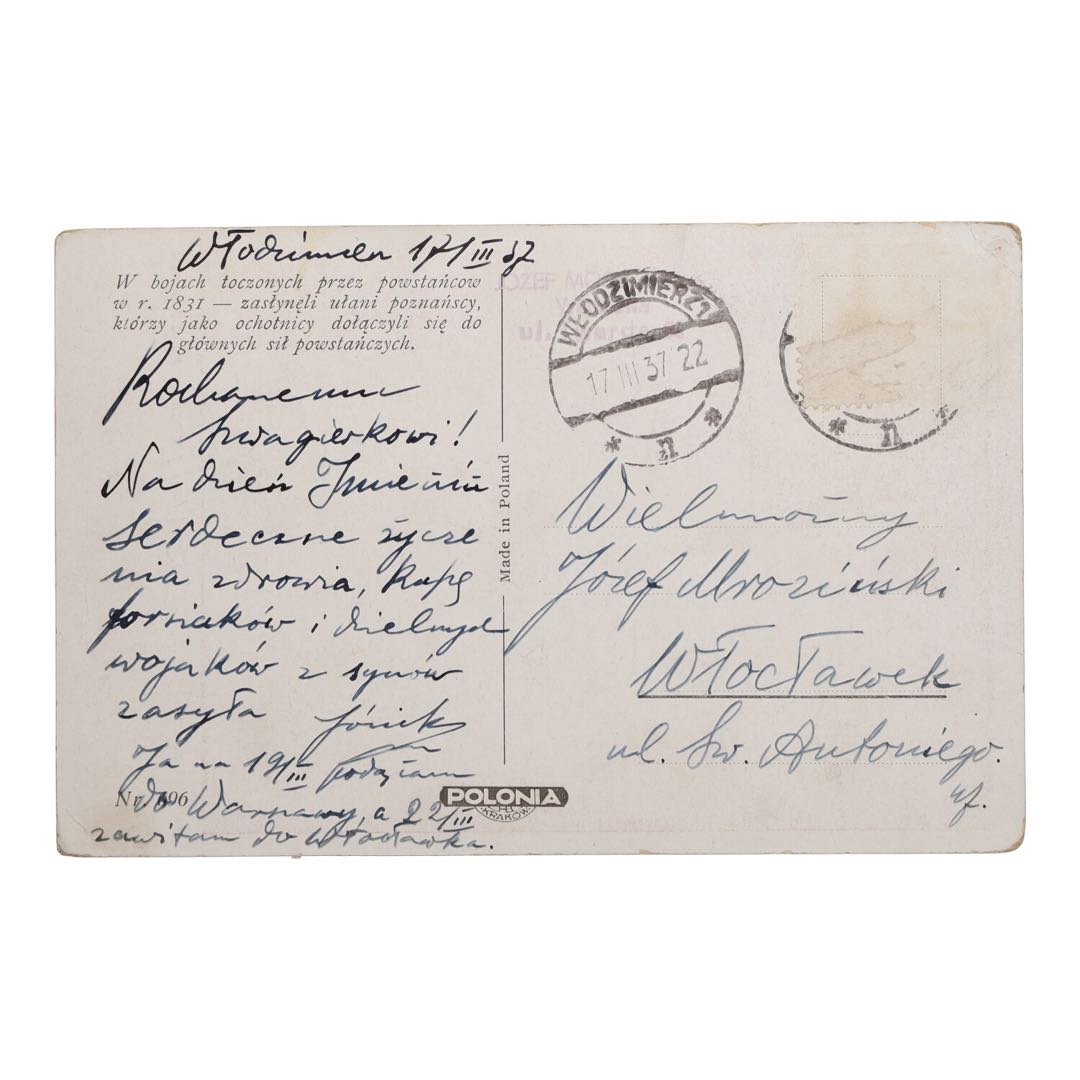 Włodzimierz 17/III 37
W bojach toczonych przez powstańców
w r. 1831 — zasłynęli ułani poznańscy,
którzy jako ochotnicy dołączyli się do
głównych sił powstańczych.
Kochanemu
Szwagierkowi!
Na dzień Imienin
serdeczne życze
nia zdrowia, kupę
forsiaków i dzielnych
wojaków z synów
zasyła Józiek
Ja na 19/III podążam
do Warszawy, a 22/III
zawitam do Włocławka.
Nr. 696
Made in Poland
POLONIA
KRAKÓW
JÓZEF
ul.
WŁODZIMIERZ 1
17 III 37 22
* n *
* n *
Wielmożny
Józef Mroziński
Włocławek
ul. Św. Antoniego.